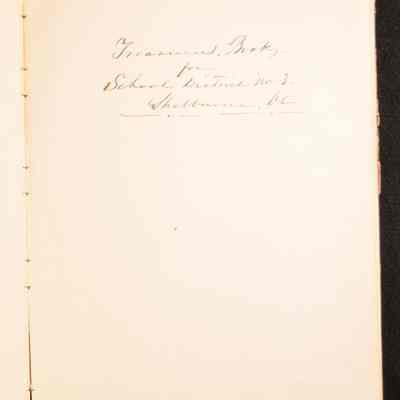 Treasurers Book,
for
School District No 3
Shelburne, Vt